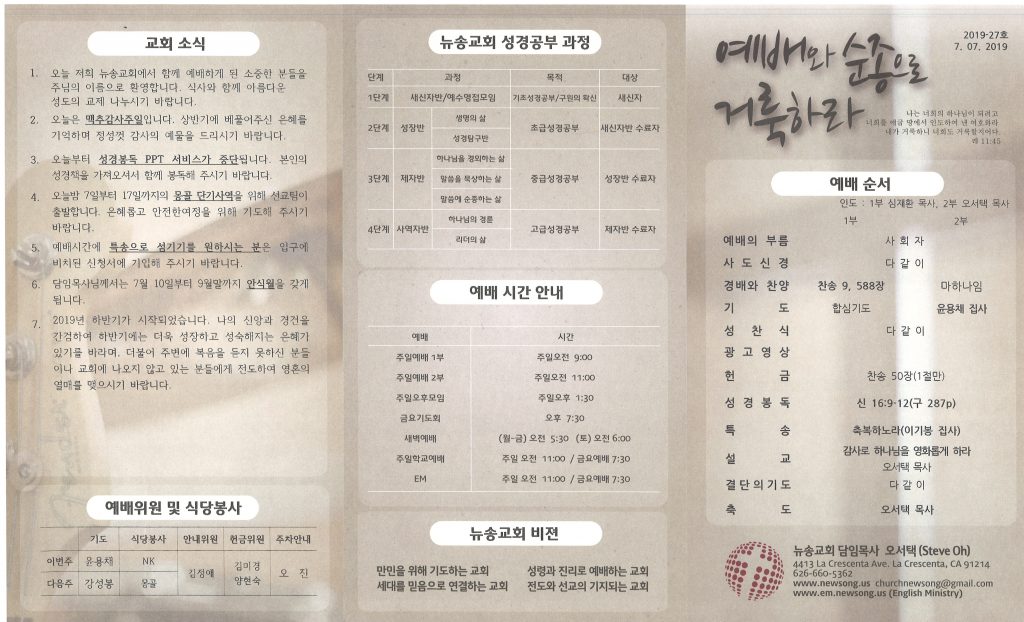 교회 소식
1. 오늘 저희 뉴송교회에서 함께 예배하게 된 소중한 분들을
주님의 이름으로 환영합니다. 식사와 함께 아름다운
성도의 교제 나누시기 바랍니다.
2. 오늘은 맥추감사주일입니다. 상반기에 베풀어주신 은혜를
기억하며 정성껏 감사의 예물을 드리시기 바랍니다.
3. 오늘부터 성경봉독 PPT 서비스가 중단됩니다. 본인의
성경책을 가져오셔서 함께 봉독해 주시기 바랍니다.
4. 오늘밤 7일부터 17일까지의 몽골 단기사역을 위해 선교팀이
출발합니다. 은혜롭고 안전한여정을 위해 기도해 주시기
바랍니다.
5. 예배시간에 특송으로 섬기기를 원하시는 분은 입구에
비치된 신청서에 기입해 주시기 바랍니다.
6. 담임목사님께서는 7월 10일부터 9월말까지 안식월을 갖게
됩니다.
7. 2019년 하반기가 시작되었습니다. 나의 신앙과 경건을
간검하여 하반기에는 더욱 성장하고 성숙해지는 은혜가
있기를 바라며, 더불어 주변에 복음을 듣지 못하신 분들
이나 교회에 나오지 않고 있는 분들에게 전도하여 영혼의
열매를 맺으시기 바랍니다.
예배위원 및 식당봉사
기도 식당봉사 안내위원 헌금위원 주차안내
이번주 윤용채 NK 김정애 김미경 양현숙 오 진
다음주 강성봉 몽골
뉴송교회 성경공부 과정
단계 과정 목적 대상
1단계 새신자반/예수영접모임 기초성경공부/구원의 확신 새신자
2단계 성장반 생명의 삶 초급성경공부 새신자반 수료자
성경탐구반
3단계 제자반 하나님을 경외하는 삶 중급성경공부 성장반 수료자
말씀을 묵상하는 삶
말씀에 순종하는 삶
4단계 사역자반 하나님의 경륜 고급성경공부 제자반 수료자
리더의 삶
예배 시간 안내
예배 시간
주일예배 1부 주일오전 9:00
주일예배 2부 주일오전 11:00
주일오후모임 주일오후 1:30
금요기도회 오후 7:30
새벽예배 (월-금) 오전 5:30 (토) 오전 6:00
주일학교예배 주일 오전 11:00 / 금요예배 7:30
EM 주일 오전 11:00 / 금요예배 7:30
뉴송교회 비전
만민을 위해 기도하는 교회 성령과 진리로 예배하는 교회
세대를 믿음으로 연결하는 교회 전도와 선교의 기지되는 교회
2019-27호
7. 07. 2019
예배와 순종으로
거룩하라
나는 너희의 하나님이 되려고
너희를 애굽 땅에서 인도하여 낸 여호와라
내가 거룩하니 너희도 거룩할지어다.
레 11:45
예배 순서
인도 : 1부 심재환 목사, 2부 오서택 목사
1부 2부
예배의 부름 사 회 자
사 도 신 경 다 같 이
경배와 찬양 찬송 9, 588장 마하나임
기 도 합심기도 윤용채 집사
성 찬 식 다 같 이
광 고 영 상
헌 금 찬송 50장(1절만)
성 경 봉 독 신 16:9-12(구 287p)
특 송 축복하노라(이기봉 집사)
설 교 감사로 하나님을 영화롭게 하라
오서택 목사
결단의기도 다 같 이
축 도 오서택 목사
뉴송교회 담임목사 오서택 (Steve Oh)
4413 La Crescenta Ave. La Crescenta, CA 91214
626-660-5362
www.newsong.us churchnewsong@gmail.com
www.em.newsong.us (English Ministry)